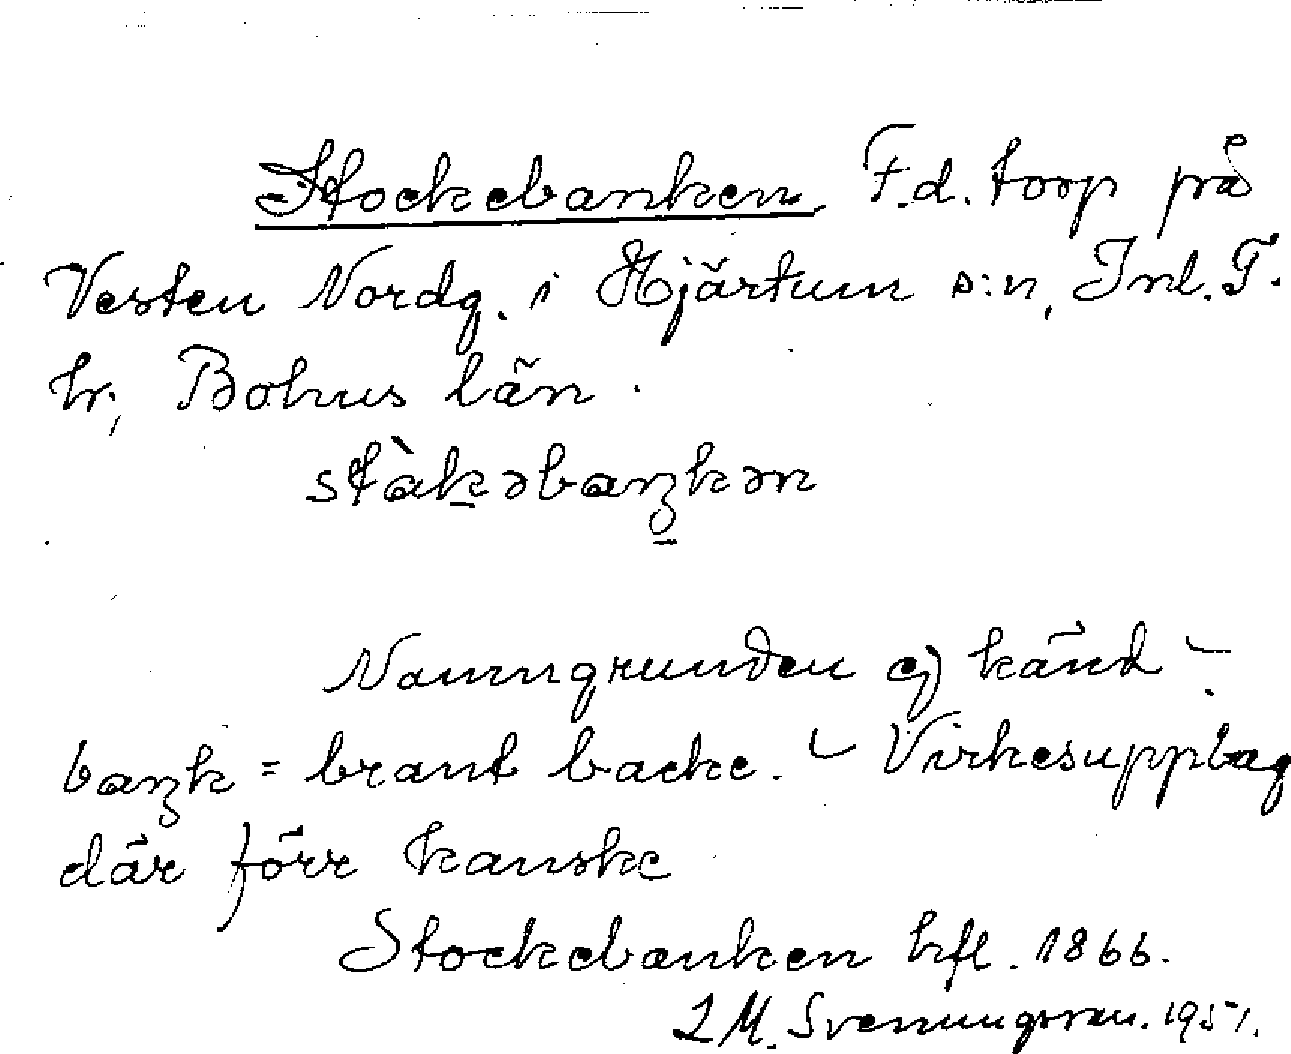 Stockebanken. F.d. torp på
Vesten Nordg. i Hjärtum s:n, Inl. T.
hr, Bohus län.
ståkəbaŋkən
Namngrunden ej känd –.
baŋk = brant backe. – Virkesupplag
där förr kanske
Stockebanken hfl. 1866.
L M. Svenungsson. 1951.